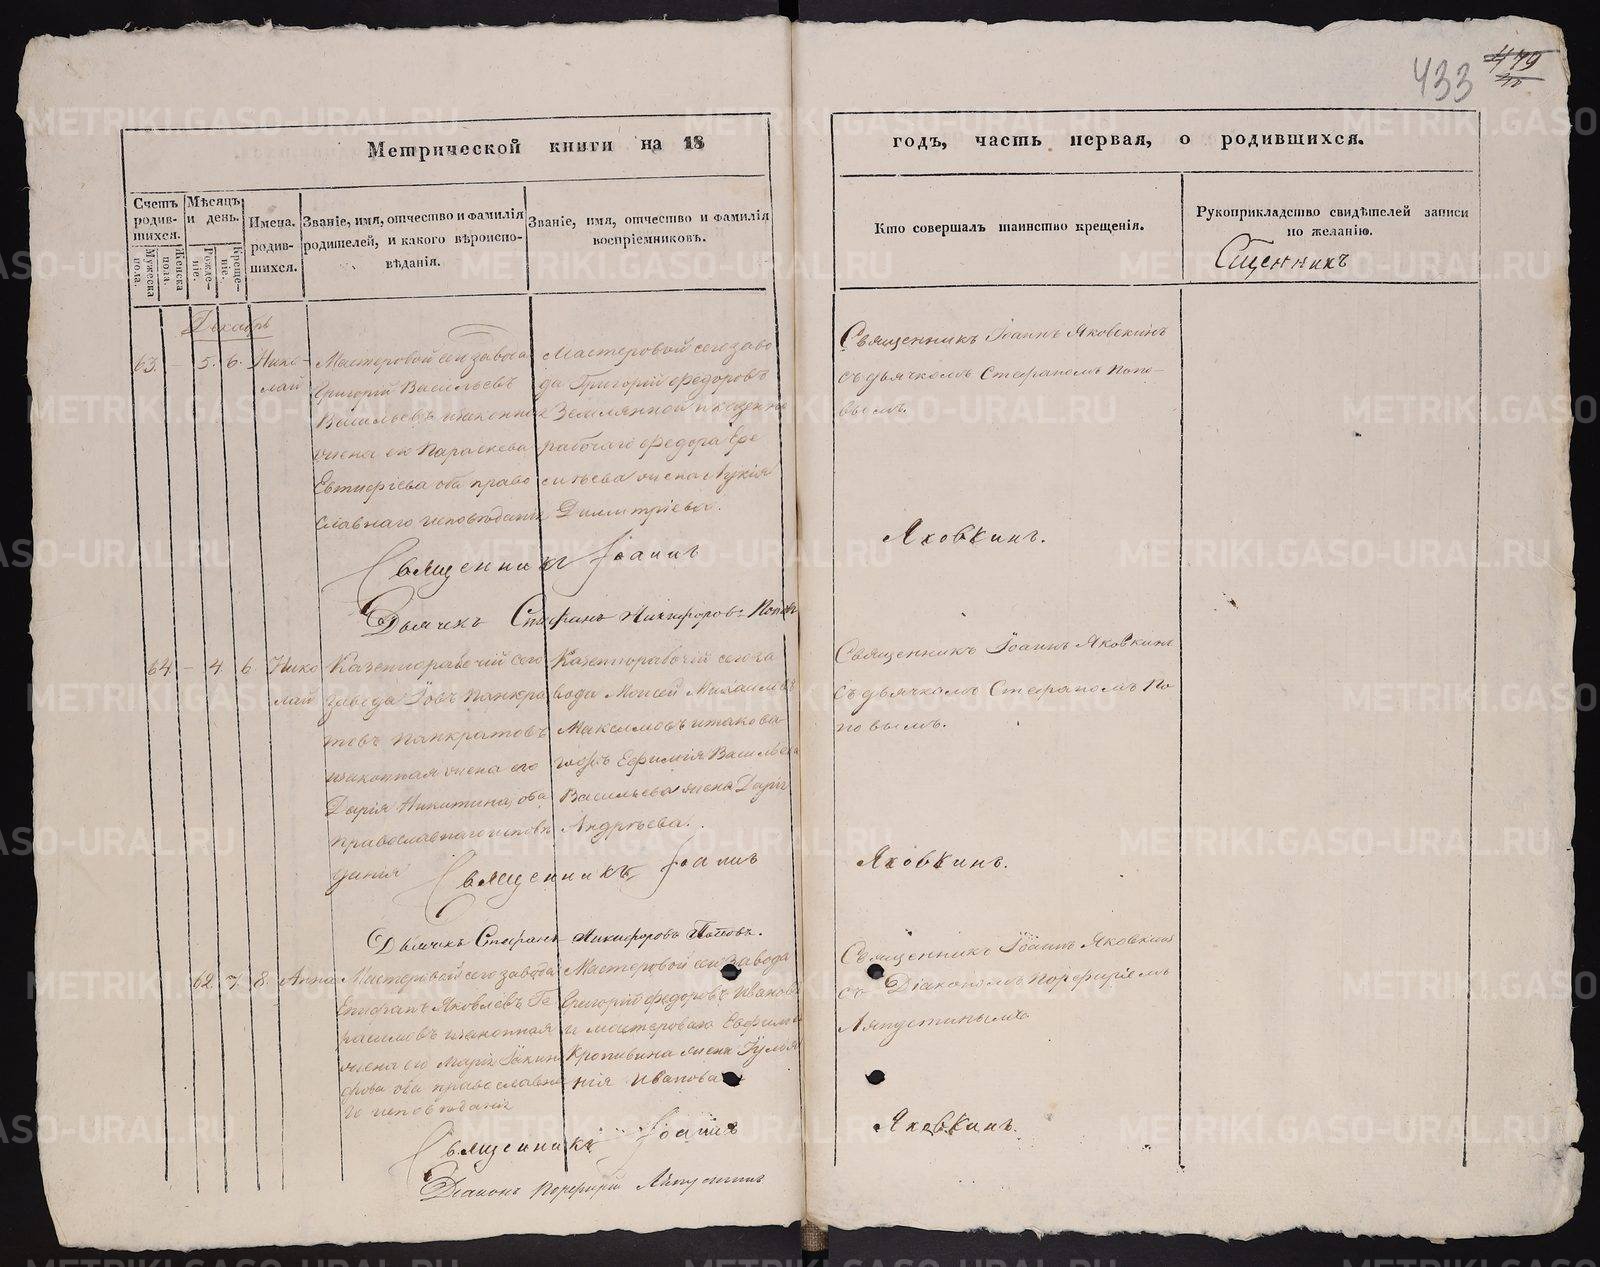 433
479
Метрической книги на 18
годъ, часть первая, о родившихся.
Счетъ родившихся.
Мужеска пола.
Женска пола.
Мѣсяцъ и день.
Рожденіе.
Крещеніе.
Имена родившихся.
Званіе, имя, отчество и фамилія родителей, и какого вѣроисповѣданія.
Званіе, имя, отчество и фамилія воспріемниковъ.
Кто совершалъ таинство крещенія.
Рукоприкладство свидѣтелей записи по желанію.
Сщенникъ
Декабрь
63. – 5. 6. Нико-
лай
Мастеровой сего завода
Григорій Васильевъ
Васильевъ и законная
жена его Параскева
Евтифіева оба право
славнаго исповѣданія
Мастеровой сего заво
да Григорій Федоровъ
Землянной и казенно
рабочаго Федора Ере
сипѣева жена Лукія
Димитріева.
Священникъ Іоаннъ Яковкинъ
съ дьячкомъ Стефаномъ Попо-
вымъ.
Священникъ Іоаннъ
Яковкинъ.
Дьячекъ Стефанъ Никифоровъ Поповъ
64. – 4. 6. Нико
лай
Казеннорабочій сего
завода Іовъ Панкра
товъ Панкратовъ
и законная жена его
Дарія Никитина, оба
православнаго исповѣ
данія
Казеннорабочій сего за
вода Моисей Михаиловъ
Максимовъ и такова
гожъ Ефимія Васильева
Васильева жена Дарія
Андрѣева.
Священникъ Іоаннъ Яковкинъ
съ дьячкомъ Стефаномъ По
повымъ.
Священникъ Іоаннъ
Яковкинъ.
Дьячекъ Стефанъ Никифоровъ Поповъ.
62. 7. 8. Анна
Мастеровой сего завода
Епифанъ Яковлевъ Ге
расимовъ и законная
жена его Марія Іакин
фова оба православна
го исповѣданія
Мастеровой сего завода
Григорій Федоровъ Ивановъ
и мастероваго Евфима
Кропивина жена Іулья
нія Иванова
Священникъ Іоаннъ Яковкинъ
съ Діакономъ Порфиріемъ
Ляпустинымъ
Священникъ Іоаннъ
Яковкинъ.
Діаконъ Порфирій Ляпустинъ
METRIKI.GASO-URAL.RU